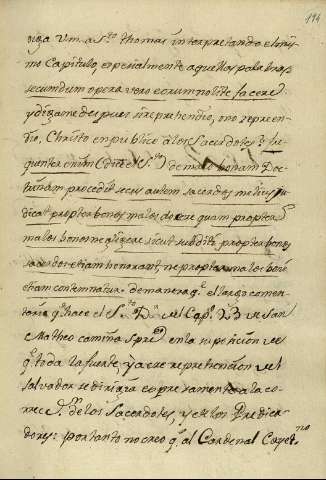 194
oiga Vm a Sto thomas interpretando el mis-
mo Capitulo, espesialmente aquellas palabras,
secundum opera vero eorum nolite facere
y digame despues si reprehendio, o no repreen-
dio, Christo en publico a los Sacerdotes: fre-
quenter enim (dice el Sto) de malo bonam Doc-
trinam procedit secus autem sacerdos melius ju-
dicat propter bonos malos quam propter
malos bonos sicut propter bonos
sacerdos etiam ne propter malos boni
etiam contemnatur. de manera qe el largo comen-
tario, qe hace el Sto Dr del Capo 23 de San
Matheo camina Spre en la
qe toda la fuerte reprehencion del
Salvador se dirigia expresamente a la co-
rreccn de los Sacerdotes, y de los Predica-
dores: por tanto no creo qe al Cardenal Cayetno